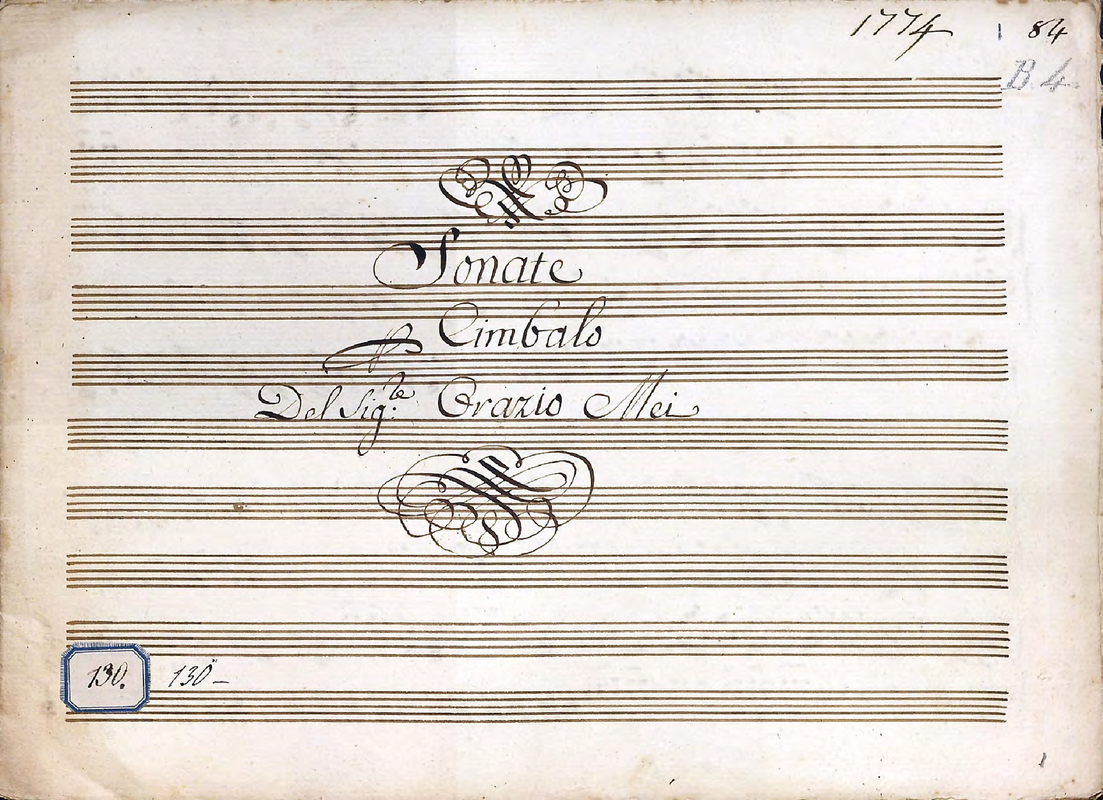 1774
84
B. 4.
Sonate
Cimbalo
Del Sig:re Orazio Mei
130. 130-
1